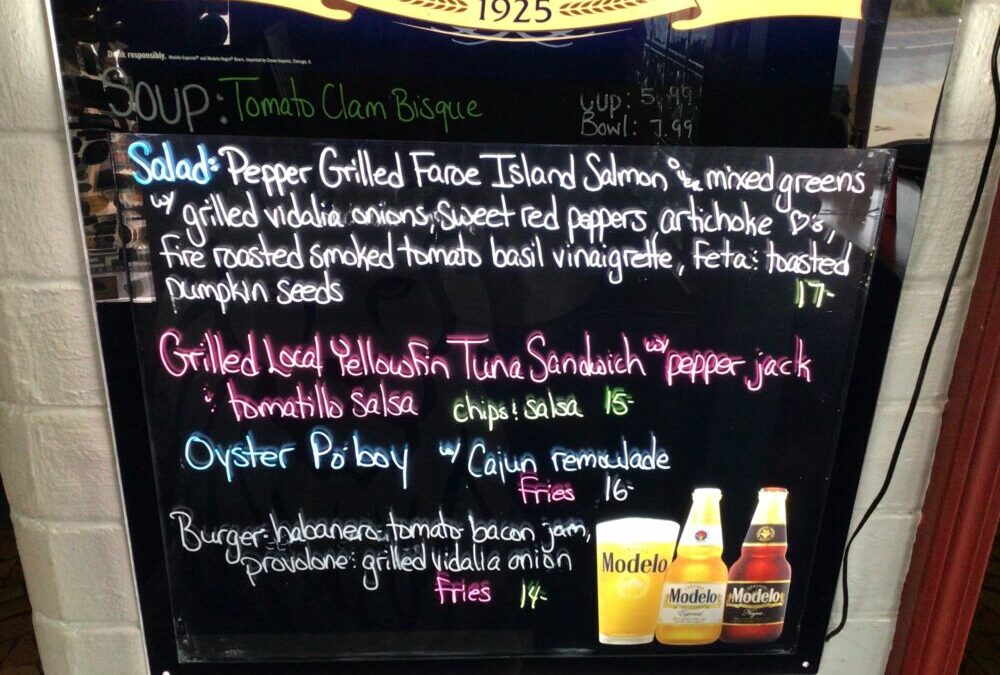 1925
responsibly.
SOUP: Tomato Clam Bisque
Cup: 5.99
Bowl: 7.99
Salad: Pepper Grilled Faroe Island Salmon over mixed greens
w/ grilled vidalia onions, sweet red peppers, artichoke ♡'s,
fire roasted smoked tomato basil vinaigrette, Feta : toasted
pumpkin seeds 17-
Grilled Local Yellowfin Tuna Sandwich w/ pepper jack
: tomatillo salsa chips : salsa 15-
Oyster Po' boy w/ Cajun remoulade
Fries 16-
Burger: habanero tomato bacon jam,
provolone : grilled vidalia onion
Fries 14-
Modelo
Modelo
Especial
Modelo
Negra